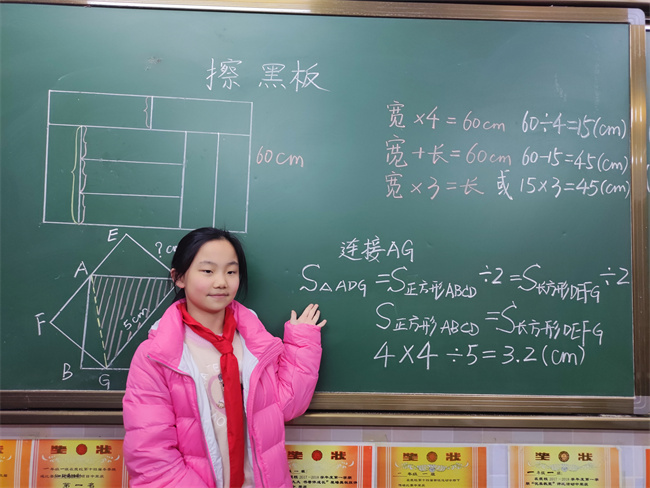 擦黑板
60cm
宽×4=60cm 60÷4=15(cm)
宽+长=60cm 60-15=45(cm)
宽×3=长 或 15×3=45(cm)
E
A
F
B
G
5cm
连接AG
S△ADG=S正方形ABCD÷2=S长方形DEFG÷2
S正方形ABCD=S长方形DEFG
4×4÷5=3.2(cm)
奖状
第一名
奖状
奖状
奖状